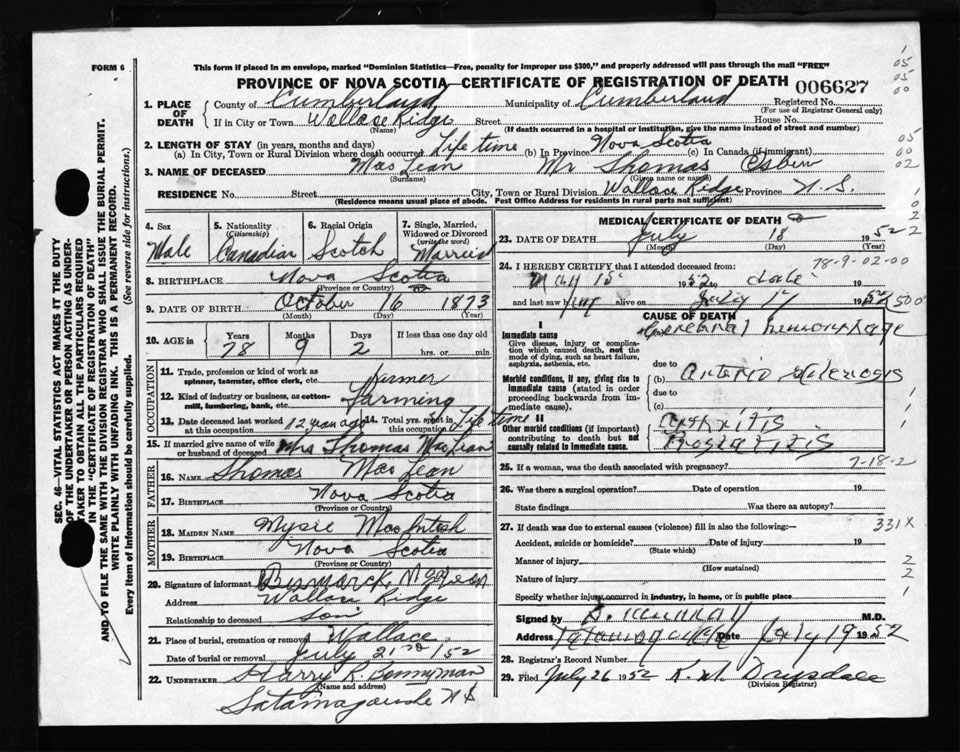 FORM 6
This form if placed in an envelope, marked "Dominion Statistics—Free, penalty for improper use $300," and properly addressed will pass through the mail "FREE"
PROVINCE OF NOVA SCOTIA—CERTIFICATE OF REGISTRATION OF DEATH 006627
1. PLACE OF DEATH
County of Cumberland Municipality of Cumberland Registered No.
(For use of Registrar General only)
If in City or Town Wallace Ridge Street House No.
(Name) (If death occurred in a hospital or institution, give the name instead of street and number)
2. LENGTH OF STAY (in years, months and days)
(a) In City, Town or Rural Division where death occurred Life time (b) In Province Nova Scotia (c) In Canada (if immigrant)
3. NAME OF DECEASED MacLean Mr Thomas
(Surname) (Given name or names)
RESIDENCE No. Street City, Town or Rural Division Wallace Ridge Province N.S.
(Residence means usual place of abode. Post Office Address for residents in rural parts not sufficient)
4. Sex Male
5. Nationality (Citizenship) Canadian
6. Racial Origin Scotch
7. Single, Married, Widowed or Divorced (write the word) Married
8. BIRTHPLACE Nova Scotia
(Province or Country)
9. DATE OF BIRTH October 16 1873
(Month) (Day) (Year)
10. AGE in Years 78 Months 9 Days 2 If less than one day old
hrs. or min.
OCCUPATION
11. Trade, profession or kind of work as spinner, teamster, office clerk, etc. Farmer
12. Kind of industry or business, as cotton-mill, lumbering, bank, etc. Farming
13. Date deceased last worked at this occupation 12 years ago
14. Total yrs. spent in this occupation Life time
15. If married give name of wife or husband of deceased Mrs Thomas MacLean
FATHER
16. NAME Thomas MacLean
17. BIRTHPLACE Nova Scotia
(Province or Country)
MOTHER
18. MAIDEN NAME Mysie MacIntosh
19. BIRTHPLACE Nova Scotia
(Province or Country)
20. Signature of informant Bismarck McLean
Address Wallace Ridge
Relationship to deceased Son
21. Place of burial, cremation or removal Wallace
Date of burial or removal July 21 /52
22. UNDERTAKER Harry K. Bonnyman
(Name and address)
Tatamagouche N S
MEDICAL CERTIFICATE OF DEATH
23. DATE OF DEATH July 18 1952
(Month) (Day) (Year)
78-9-02-00
24. I HEREBY CERTIFY that I attended deceased from:
15 1952 to date
and last saw him alive on July 17 1952
CAUSE OF DEATH
I
Immediate cause
Give disease, injury or complication which caused death, not the mode of dying, such as heart failure, asphyxia, asthenia, etc.
(a) Cerebral hemorrhage
due to
Morbid conditions, if any, giving rise to immediate cause (stated in order proceeding backwards from immediate cause).
(b) arterio sclerosis
due to
(c)
II
Other morbid conditions (if important) contributing to death but not causally related to immediate cause.
Prostatitis
25. If a woman, was the death associated with pregnancy? 7-18-2
26. Was there a surgical operation? Date of operation 19
State findings Was there an autopsy?
27. If death was due to external causes (violence) fill in also the following:— 331X
Accident, suicide or homicide? Date of injury 19
(State which)
Manner of injury
(How sustained)
Nature of injury
Specify whether injury occurred in industry, in home, or in public place
Signed by D. Murray M.D.
Address Tatamagouche Date July 19 1952
28. Registrar's Record Number
29. Filed July 26 1952 K. M. Drysdale
(Division Registrar)
SEC. 46—VITAL STATISTICS ACT MAKES IT THE DUTY
OF THE UNDERTAKER OR PERSON ACTING AS UNDER-
TAKER TO OBTAIN ALL THE PARTICULARS REQUIRED
IN THE "CERTIFICATE OF REGISTRATION OF DEATH"
AND TO FILE THE SAME WITH THE DIVISION REGISTRAR WHO SHALL ISSUE THE BURIAL PERMIT.
WRITE PLAINLY WITH UNFADING INK. THIS IS A PERMANENT RECORD.
Every item of information should be carefully supplied. (See reverse side for instructions.)